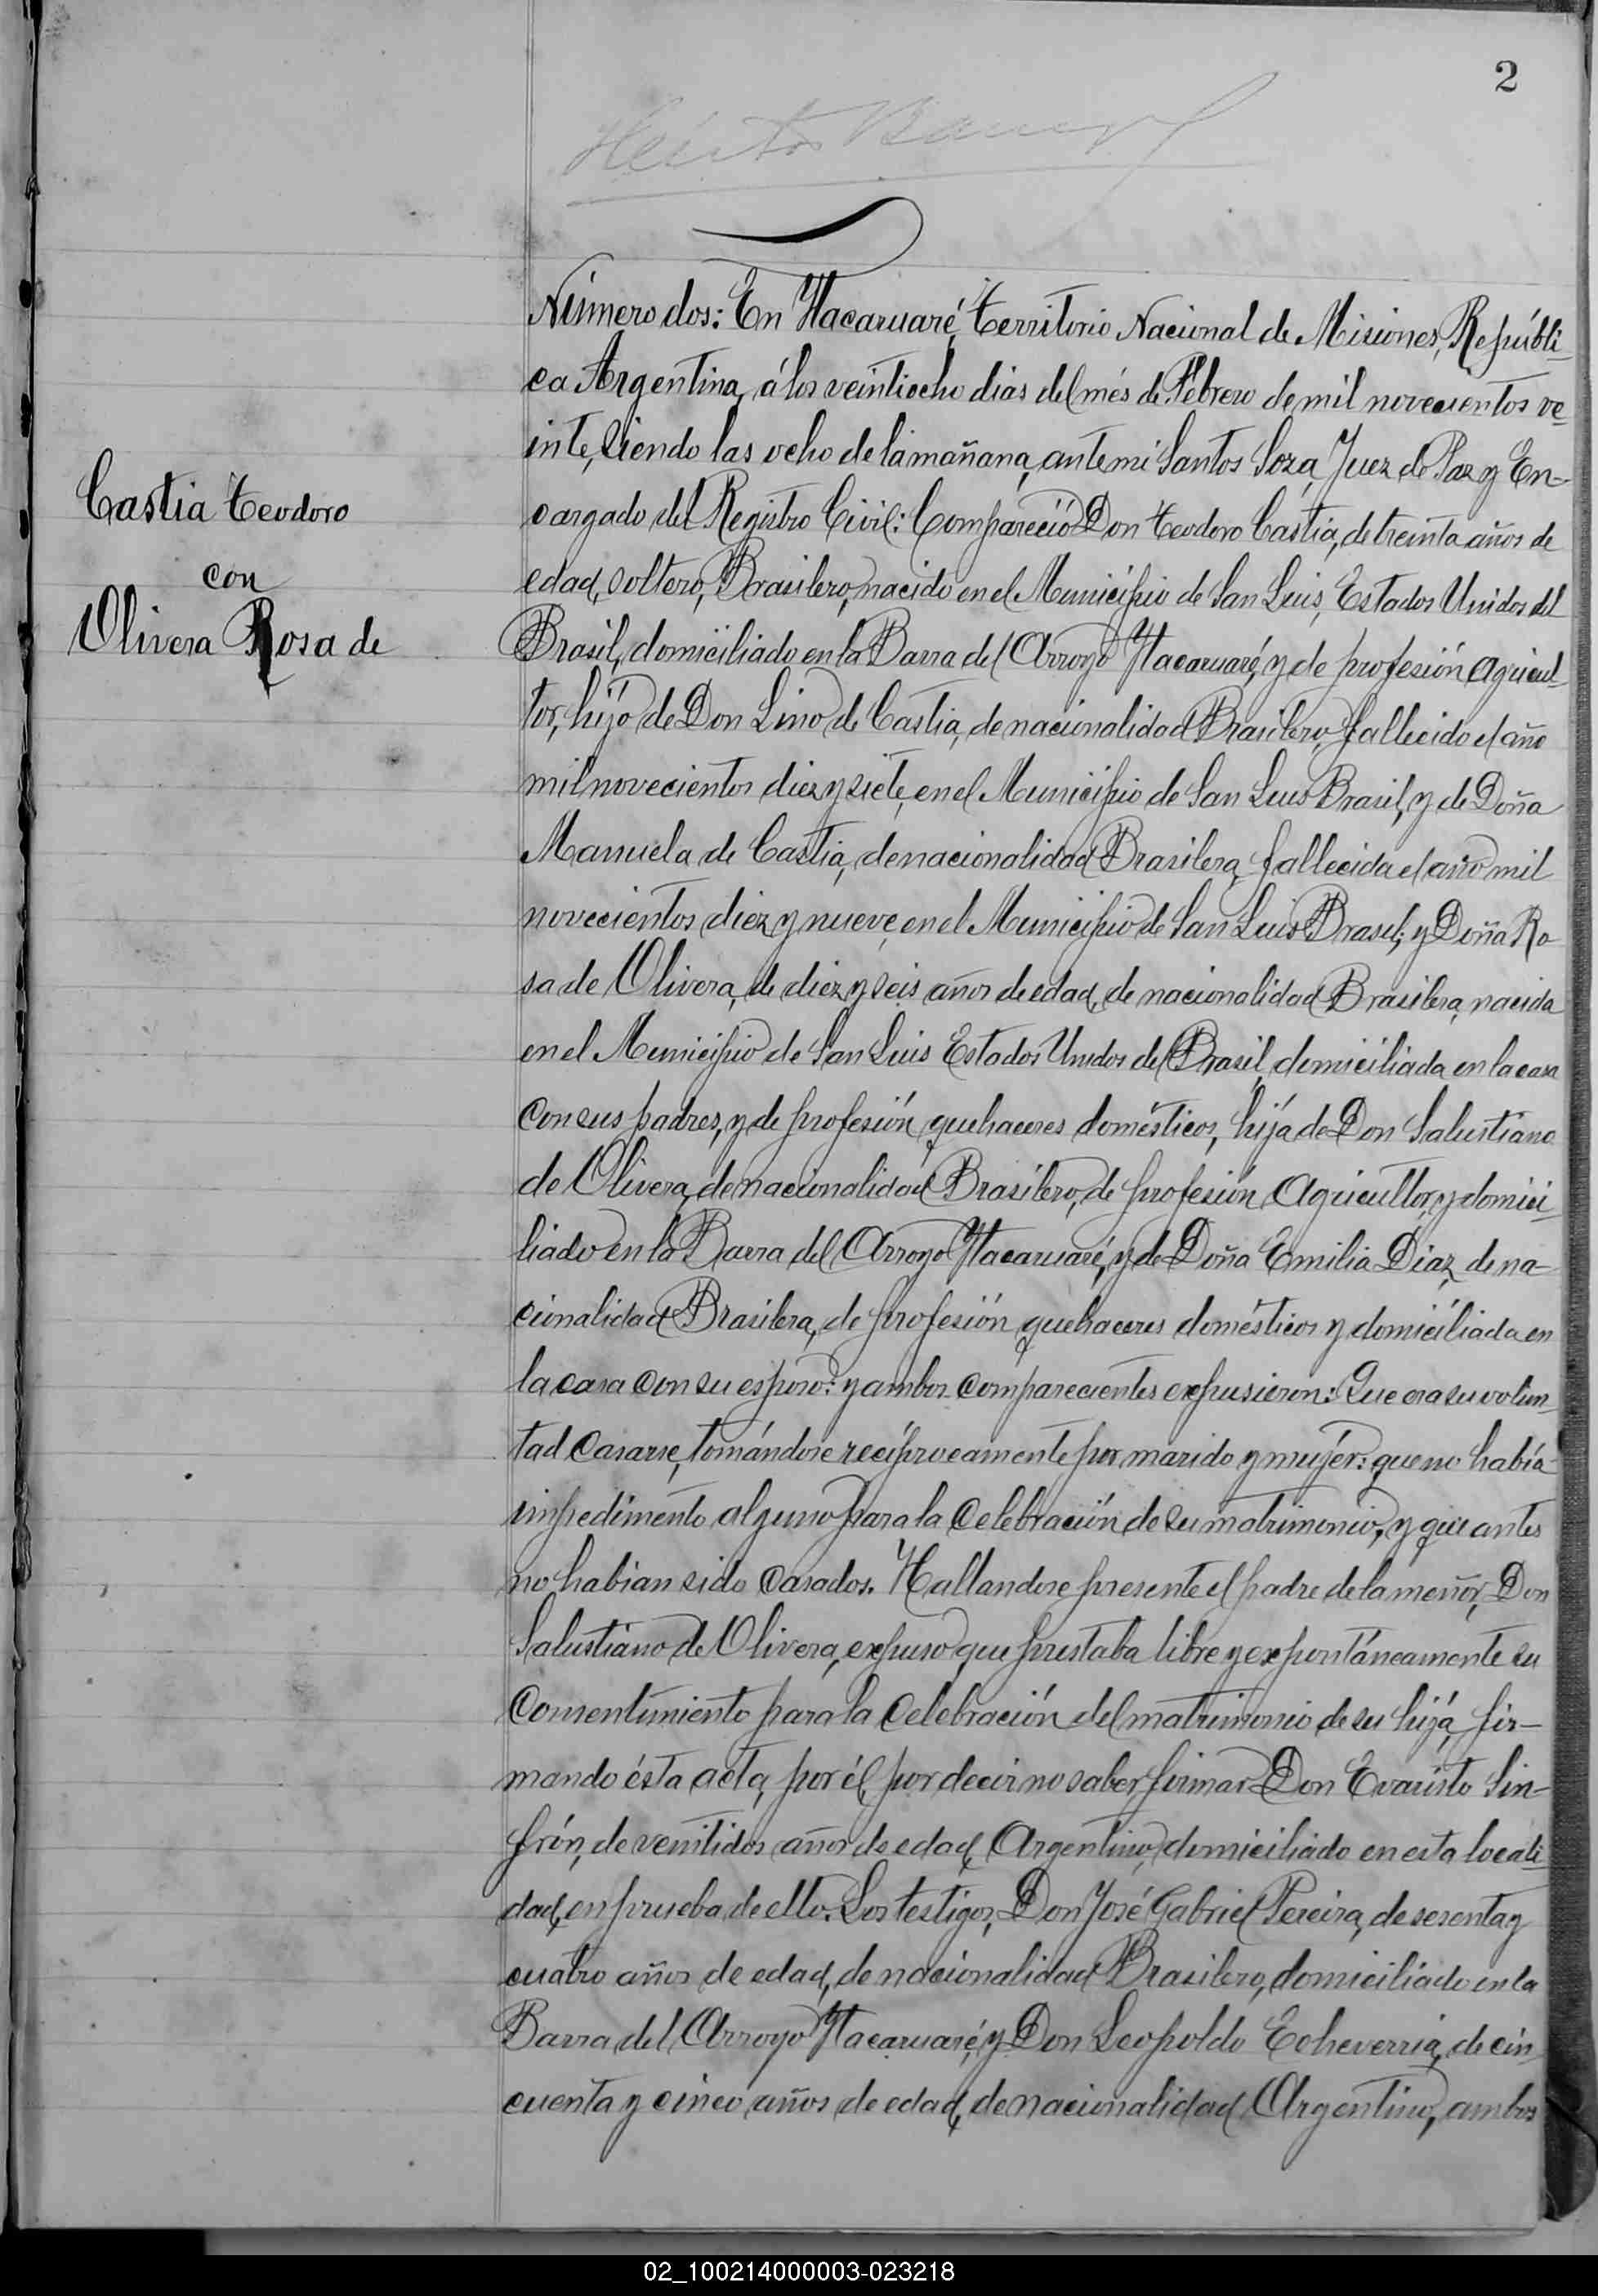 2
Número dos: En Ytacaruaré, Territorio Nacional de Misiones, Repúbli-
ca Argentina, á los veintiocho dias del més de Febrero de mil novecientos ve-
inte, siendo las ocho de la mañana, ante mi Santos Soza, Juez de Paz y En-
cargado del Registro Civil: Compareció Don Teodoro Castia, de treinta años de
edad, soltero, Brasilero, nacido en el Municipio de San Luis, Estados Unidos del
Brasil, domiciliado en la Barra del Arroyo Ytacaruaré, y de profesión Agricul-
tor, hijo de Don Lino de Castia, de nacionalidad Brasilero, fallecido el año
mil novecientos diez y siete, en el Municipio de San Luis Brasil, y de Doña
Manuela de Castia, de nacionalidad Brasilera, fallecida el año mil
novecientos diez y nueve, en el Municipio de San Luis Brasil; y Doña Ro
sa de Olivera, de diez y seis años de edad, de nacionalidad Brasilera, nacida
en el Municipio de San Luis Estados Unidos del Brasil, domiciliada en la casa
con sus padres, y de profesión quehaceres domésticos, hija de Don Salustiano
de Olivera, de nacionalidad Brasilero, de profesión Agricultor, y domici-
liado en la Barra del Arroyo Ytacaruaré, y de Doña Emilia Diaz, de na-
cionalidad Brasilera, de profesión quehaceres domésticos y domiciliada en
la casa con su esposo: y ambos comparecientes expusieron: Que era su volun-
tad casarse, tomándose recíprocamente por marido y mujér: que no había
impedimento alguno para la celebración de su matrimonio, y que antes
no habian sido casados. Hallandose presente el padre de la menor, Don
Salustiano de Olivera, expuso que prestaba libre y expontáneamente su
consentimiento para la celebración del matrimonio de su hija, fir-
mando ésta acta, por él, por decir no saber firmar Don Evaristo Sin-
frón, de ventidos años de edad, Argentino, domiciliado en esta locali-
dad, en prueba de ello. Los testigos, Don José Gabriel Pereira, de sesenta y
cuatro años de edad, de nacionalidad Brasilero, domiciliado en la
Barra del Arroyo Ytacaruaré, y Don Leopoldo Echeverria, de cin
cuenta y cinco años de edad, de nacionalidad Argentino, ambos
Castia Teodoro
con
Olivera Rosa de
02_100214000003-023218